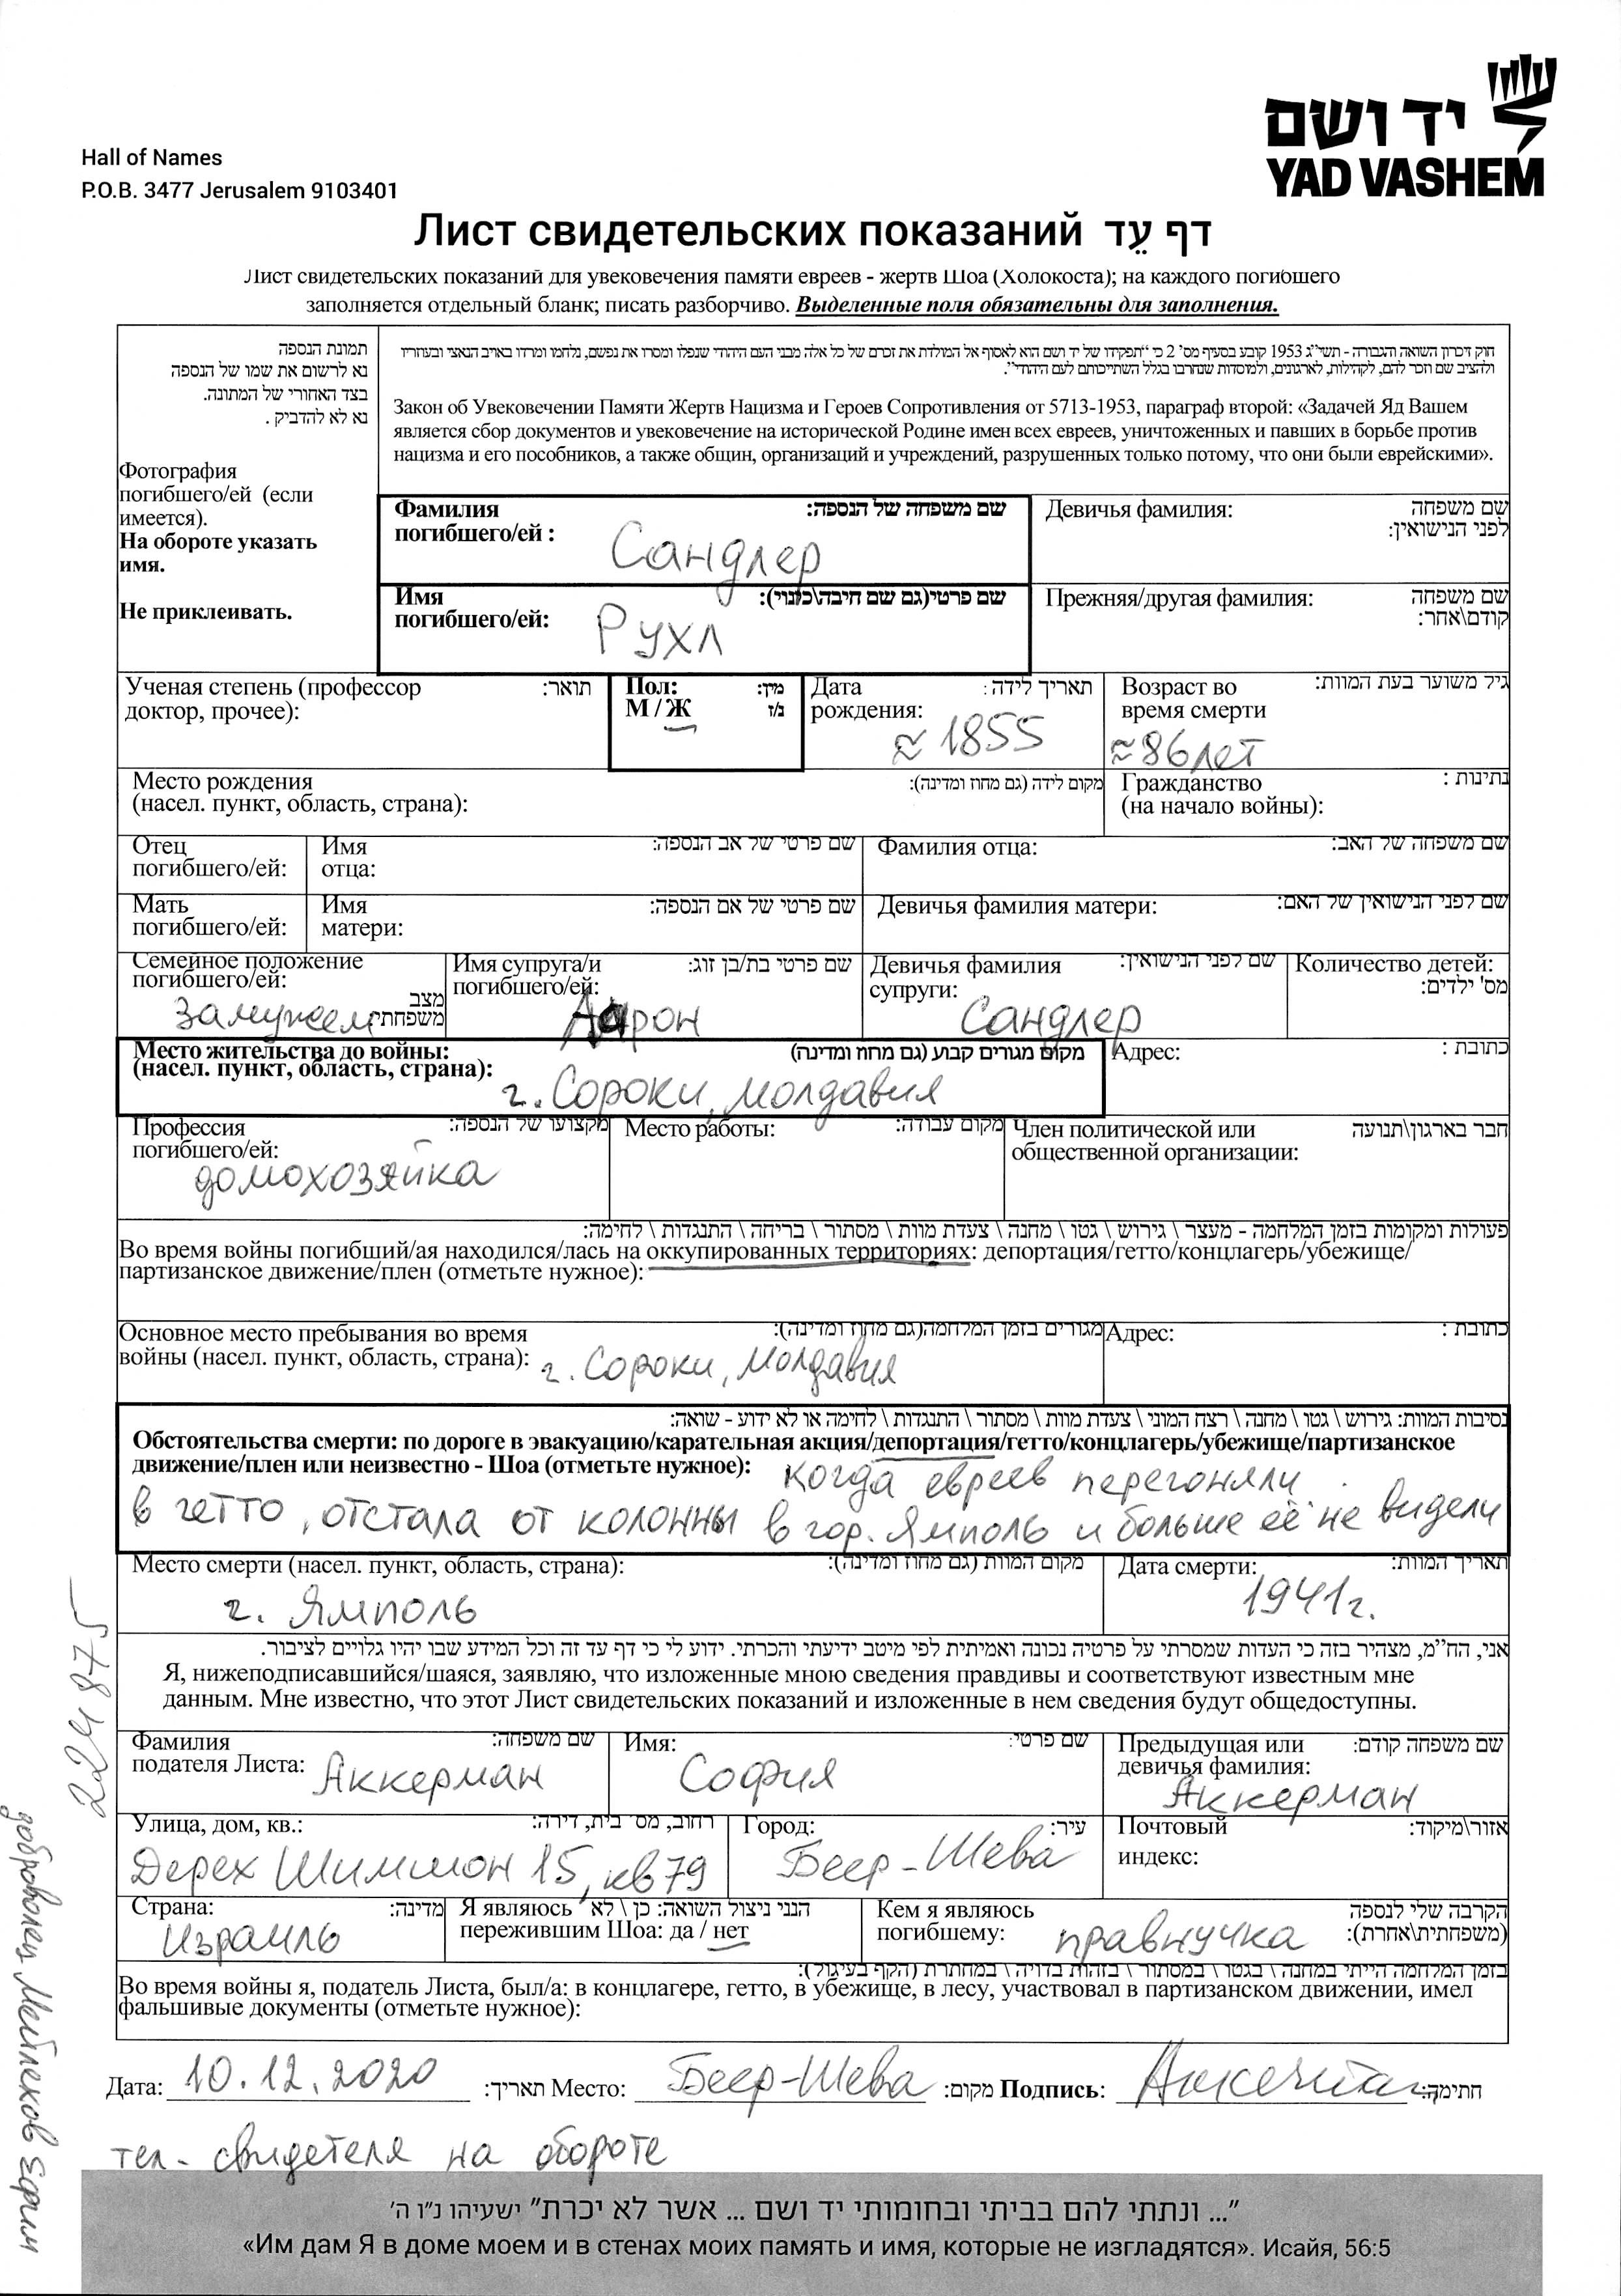 יד ושם
YAD VASHEM
Hall of Names
P.O.B. 3477 Jerusalem 9103401
Лист свидетельских показаний דף עֵד
Лист свидетельских показаний для увековечения памяти евреев - жертв Шоа (Холокоста); на каждого погибшего
заполняется отдельный бланк; писать разборчиво. Выделенные поля обязательны для заполнения.
תמונת הנספה
נא לרשום את שמו של הנספה
בצד האחורי של המתונה.
נא לא להדביק .
Фотография
погибшего/ей (если
имеется).
На обороте указать
имя.
Не приклеивать.
חוק זיכרון השואה והגבורה - תשי"ג 1953 קובע בסעיף מס' 2 כי "תפקידו של יד ושם הוא לאסוף אל המולדת את זכרם של כל אלה מבני העם היהודי שנפלו ומסרו את נפשם, נלחמו ומרדו באויב הנאצי ובעוזריו
ולהציב שם וזכר להם, לקהילות, לארגונים, ולמוסדות שנחרבו בגלל השתייכותם לעם היהודי".
Закон об Увековечении Памяти Жертв Нацизма и Героев Сопротивления от 5713-1953, параграф второй: «Задачей Яд Вашем
является сбор документов и увековечение на исторической Родине имен всех евреев, уничтоженных и павших в борьбе против
нацизма и его пособников, а также общин, организаций и учреждений, разрушенных только потому, что они были еврейскими».
Фамилия שם משפחה של הנספה:
погибшего/ей :
Сандлер
Девичья фамилия: שם משפחה
לפני הנישואין:
Имя שם פרטי(גם שם חיבה\כינוי):
погибшего/ей:
Рухл
Прежняя/другая фамилия: שם משפחה
קודם\אחר:
Ученая степень (профессор תואר:
доктор, прочее):
Пол: מין:
М / Ж ז/נ
Дата תאריך לידה :
рождения:
≈ 1855
Возраст во גיל משוער בעת המוות:
время смерти
≈86 лет
Место рождения
(насел. пункт, область, страна): מקום לידה (גם מחוז ומדינה):
Гражданство נתינות :
(на начало войны):
Отец
погибшего/ей:
Имя שם פרטי של אב הנספה:
отца:
Фамилия отца: שם משפחה של האב:
Мать
погибшего/ей:
Имя שם פרטי של אם הנספה:
матери:
Девичья фамилия матери: שם לפני הנישואין של האם:
Семейное положение
погибшего/ей:
מצב
משפחתי:
замужем
Имя супруга/и שם פרטי בת/בן זוג:
погибшего/ей:
Аарон
Девичья фамилия שם לפני הנישואין:
супруги:
Сандлер
Количество детей:
מס' ילדים:
Место жительства до войны: מקום מגורים קבוע (גם מחוז ומדינה)
(насел. пункт, область, страна):
г. Сороки, Молдавия
Адрес: כתובת :
Профессия מקצועו של הנספה:
погибшего/ей:
домохозяйка
Место работы: מקום עבודה:
Член политической или חבר בארגון\תנועה
общественной организации:
פעולות ומקומות בזמן המלחמה - מעצר \ גירוש \ גטו \ מחנה \ צעדת מוות \ מסתור \ בריחה \ התנגדות \ לחימה:
Во время войны погибший/ая находился/лась на оккупированных территориях: депортация/гетто/концлагерь/убежище/
партизанское движение/плен (отметьте нужное):
Основное место пребывания во время מגורים בזמן המלחמה(גם מחוז ומדינה):
войны (насел. пункт, область, страна): г. Сороки, Молдавия
Адрес: כתובת :
נסיבות המוות: גירוש \ גטו \ מחנה \ רצח המוני \ צעדת מוות \ מסתור \ התנגדות \ לחימה או לא ידוע - שואה:
Обстоятельства смерти: по дороге в эвакуацию/карательная акция/депортация/гетто/концлагерь/убежище/партизанское
движение/плен или неизвестно - Шоа (отметьте нужное): когда евреев перегоняли
в гетто, отстала от колонны в гор. Ямполь и больше её не видели
Место смерти (насел. пункт, область, страна): מקום המוות (גם מחוז ומדינה):
г. Ямполь
Дата смерти: תאריך המוות:
1941г.
אני, הח"מ, מצהיר בזה כי העדות שמסרתי על פרטיה נכונה ואמיתית לפי מיטב ידיעתי והכרתי. ידוע לי כי דף עד זה וכל המידע שבו יהיו גלויים לציבור.
Я, нижеподписавшийся/шаяся, заявляю, что изложенные мною сведения правдивы и соответствуют известным мне
данным. Мне известно, что этот Лист свидетельских показаний и изложенные в нем сведения будут общедоступны.
Фамилия שם משפחה:
подателя Листа: Аккерман
Имя: שם פרטי:
София
Предыдущая или שם משפחה קודם:
девичья фамилия:
Аккерман
Улица, дом, кв.: רחוב, מס' בית, דירה:
Дерех Шимшон 15, кв 79
Город: עיר:
Беер-Шева
Почтовый אזור\מיקוד:
индекс:
Страна: מדינה:
Израиль
Я являюсь הנני ניצול השואה: כן \ לא
пережившим Шоа: да / нет
Кем я являюсь הקרבה שלי לנספה
погибшему: правнучка (משפחתית\אחרת):
בזמן המלחמה הייתי במחנה \ בגטו \ במסתור \ בזהות בדויה \ במחתרת (הקף בעיגול):
Во время войны я, податель Листа, был/а: в концлагере, гетто, в убежище, в лесу, участвовал в партизанском движении, имел
фальшивые документы (отметьте нужное):
Дата: 10.12.2020 תאריך: Место: Беер-Шева מקום: Подпись: חתימה:
тел. свидетеля на обороте
224875
доброволец Мейлехов Ефим
"... ונתתי להם בביתי ובחומותי יד ושם ... אשר לא יכרת" ישעיהו נ"ו ה'
«Им дам Я в доме моем и в стенах моих память и имя, которые не изгладятся». Исайя, 56:5